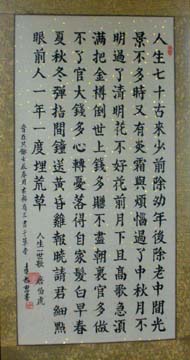 人生七十古來少前除幼年後除老中間光
景不多時又有炎霜與煩惱過了中秋月不
明過了清明花不好花前月下且高歌急須
滿把金樽倒世上錢多賺不盡朝裏官多做
不了官大錢多心轉憂落得自家髮白早春
夏秋冬彈指間鐘送黃昏雞報曉請君細點
眼前人一年一度埋荒草
人生一世歌 唐伯虎